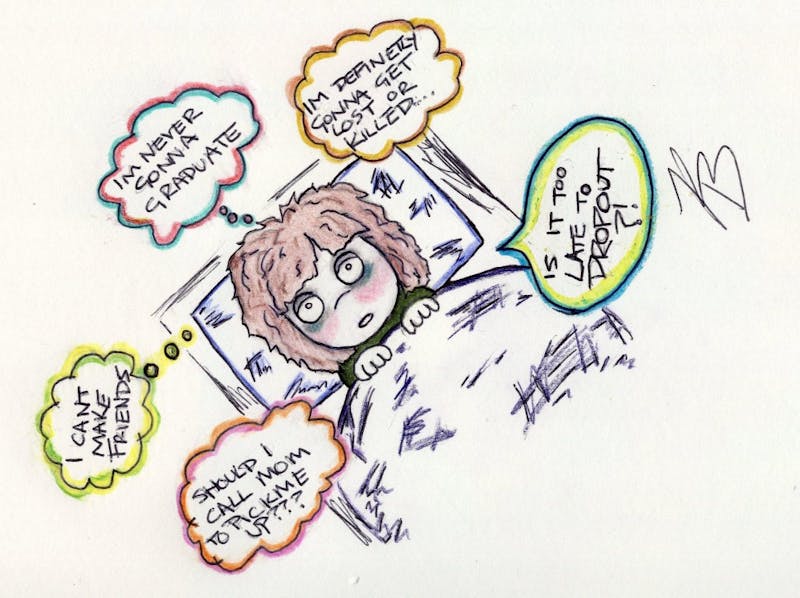 IM NEVER
GONNA
GRADUATE
IM DEFINETLY
GONNA GET
LOST OR
KILLED....
IS IT TOO
LATE TO
DROPOUT
?!
I CANT
MAKE
FRIENDS
SHOULD I
CALL MOM
TO PICKME
UP???